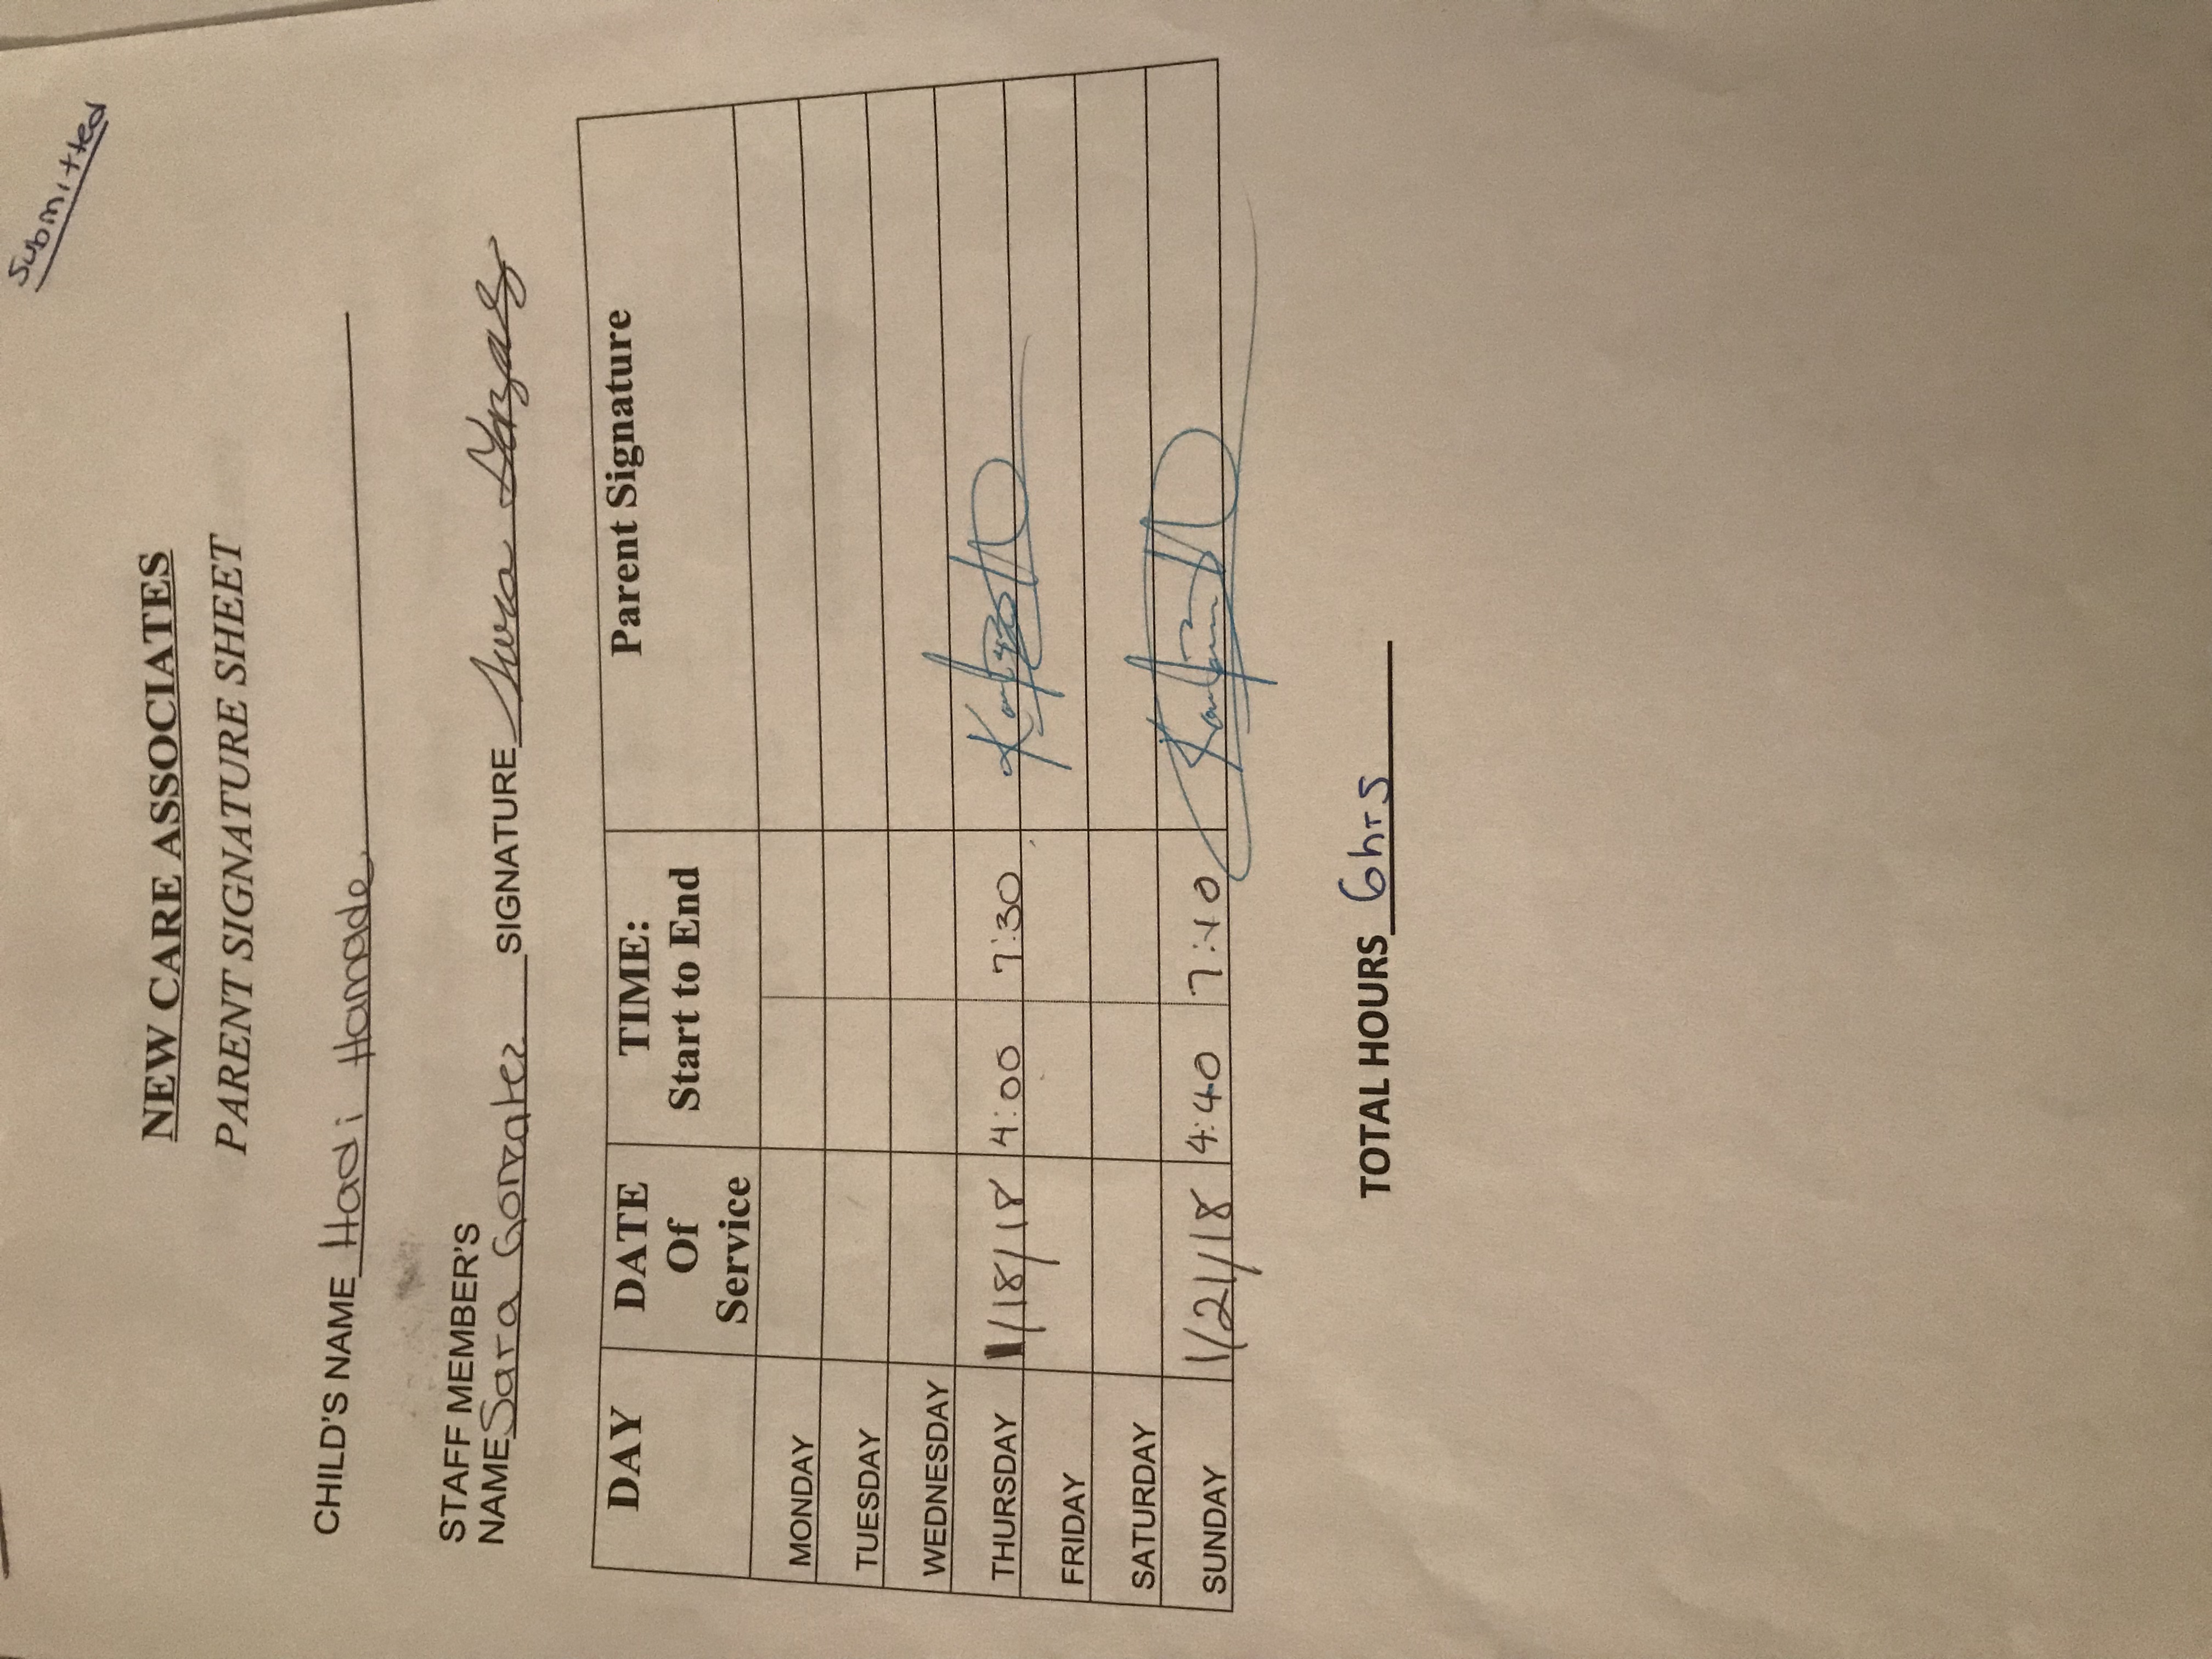 Submitted
NEW CARE ASSOCIATES
PARENT SIGNATURE SHEET
CHILD'S NAME Hadi Hamade
STAFF MEMBER'S
NAME Sara Gonzalez SIGNATURE Sara Gonzalez
DAY DATE TIME: Parent Signature
Of Start to End
Service
MONDAY
TUESDAY
WEDNESDAY
THURSDAY 1/18/18 4:00 7:30
FRIDAY
SATURDAY
SUNDAY 1/21/18 4:40 7:10
TOTAL HOURS 6hrs